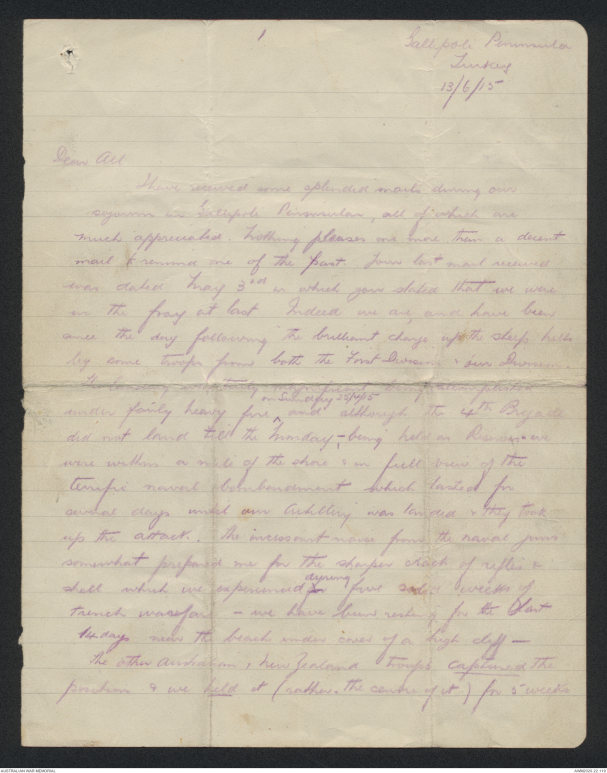 1
Gallipoli Peninsula
Turkey
13/6/15
Dear All
I have received some splendid mails during our
sojourn in Gallipoli Peninsular, all of which are
much appreciated. Nothing pleases me more than a decent
mail to remind me of the past. Your last mail received
was dated May 3rd in which you stated that we were
in the fray at last. Indeed we are, and have been
since the day following the brilliant charge up the steep hills
by some troops from both the First Division & our Division.
The landing was magnificent
on Sunday 25/4/15
under fairly heavy fire ^ and although the 4th Brigade
did not land till the Monday - being held as we
were within a mile of the shore & in full view of the
terrific naval bombardment which lasted for
several days until our Artillery was landed & they took
up the attack. The incessant noise from the naval guns
somewhat prepared me for the sharper crack of rifles &
during
shell which we experienced five weeks of
trench warfare - we have been resting for the last
14 days near the beach under cover of a high cliff -
The other Australian & New Zealand troops captured the
position & we held it (rather, the centre of it) for 5 weeks
AUSTRALIAN WAR MEMORIAL